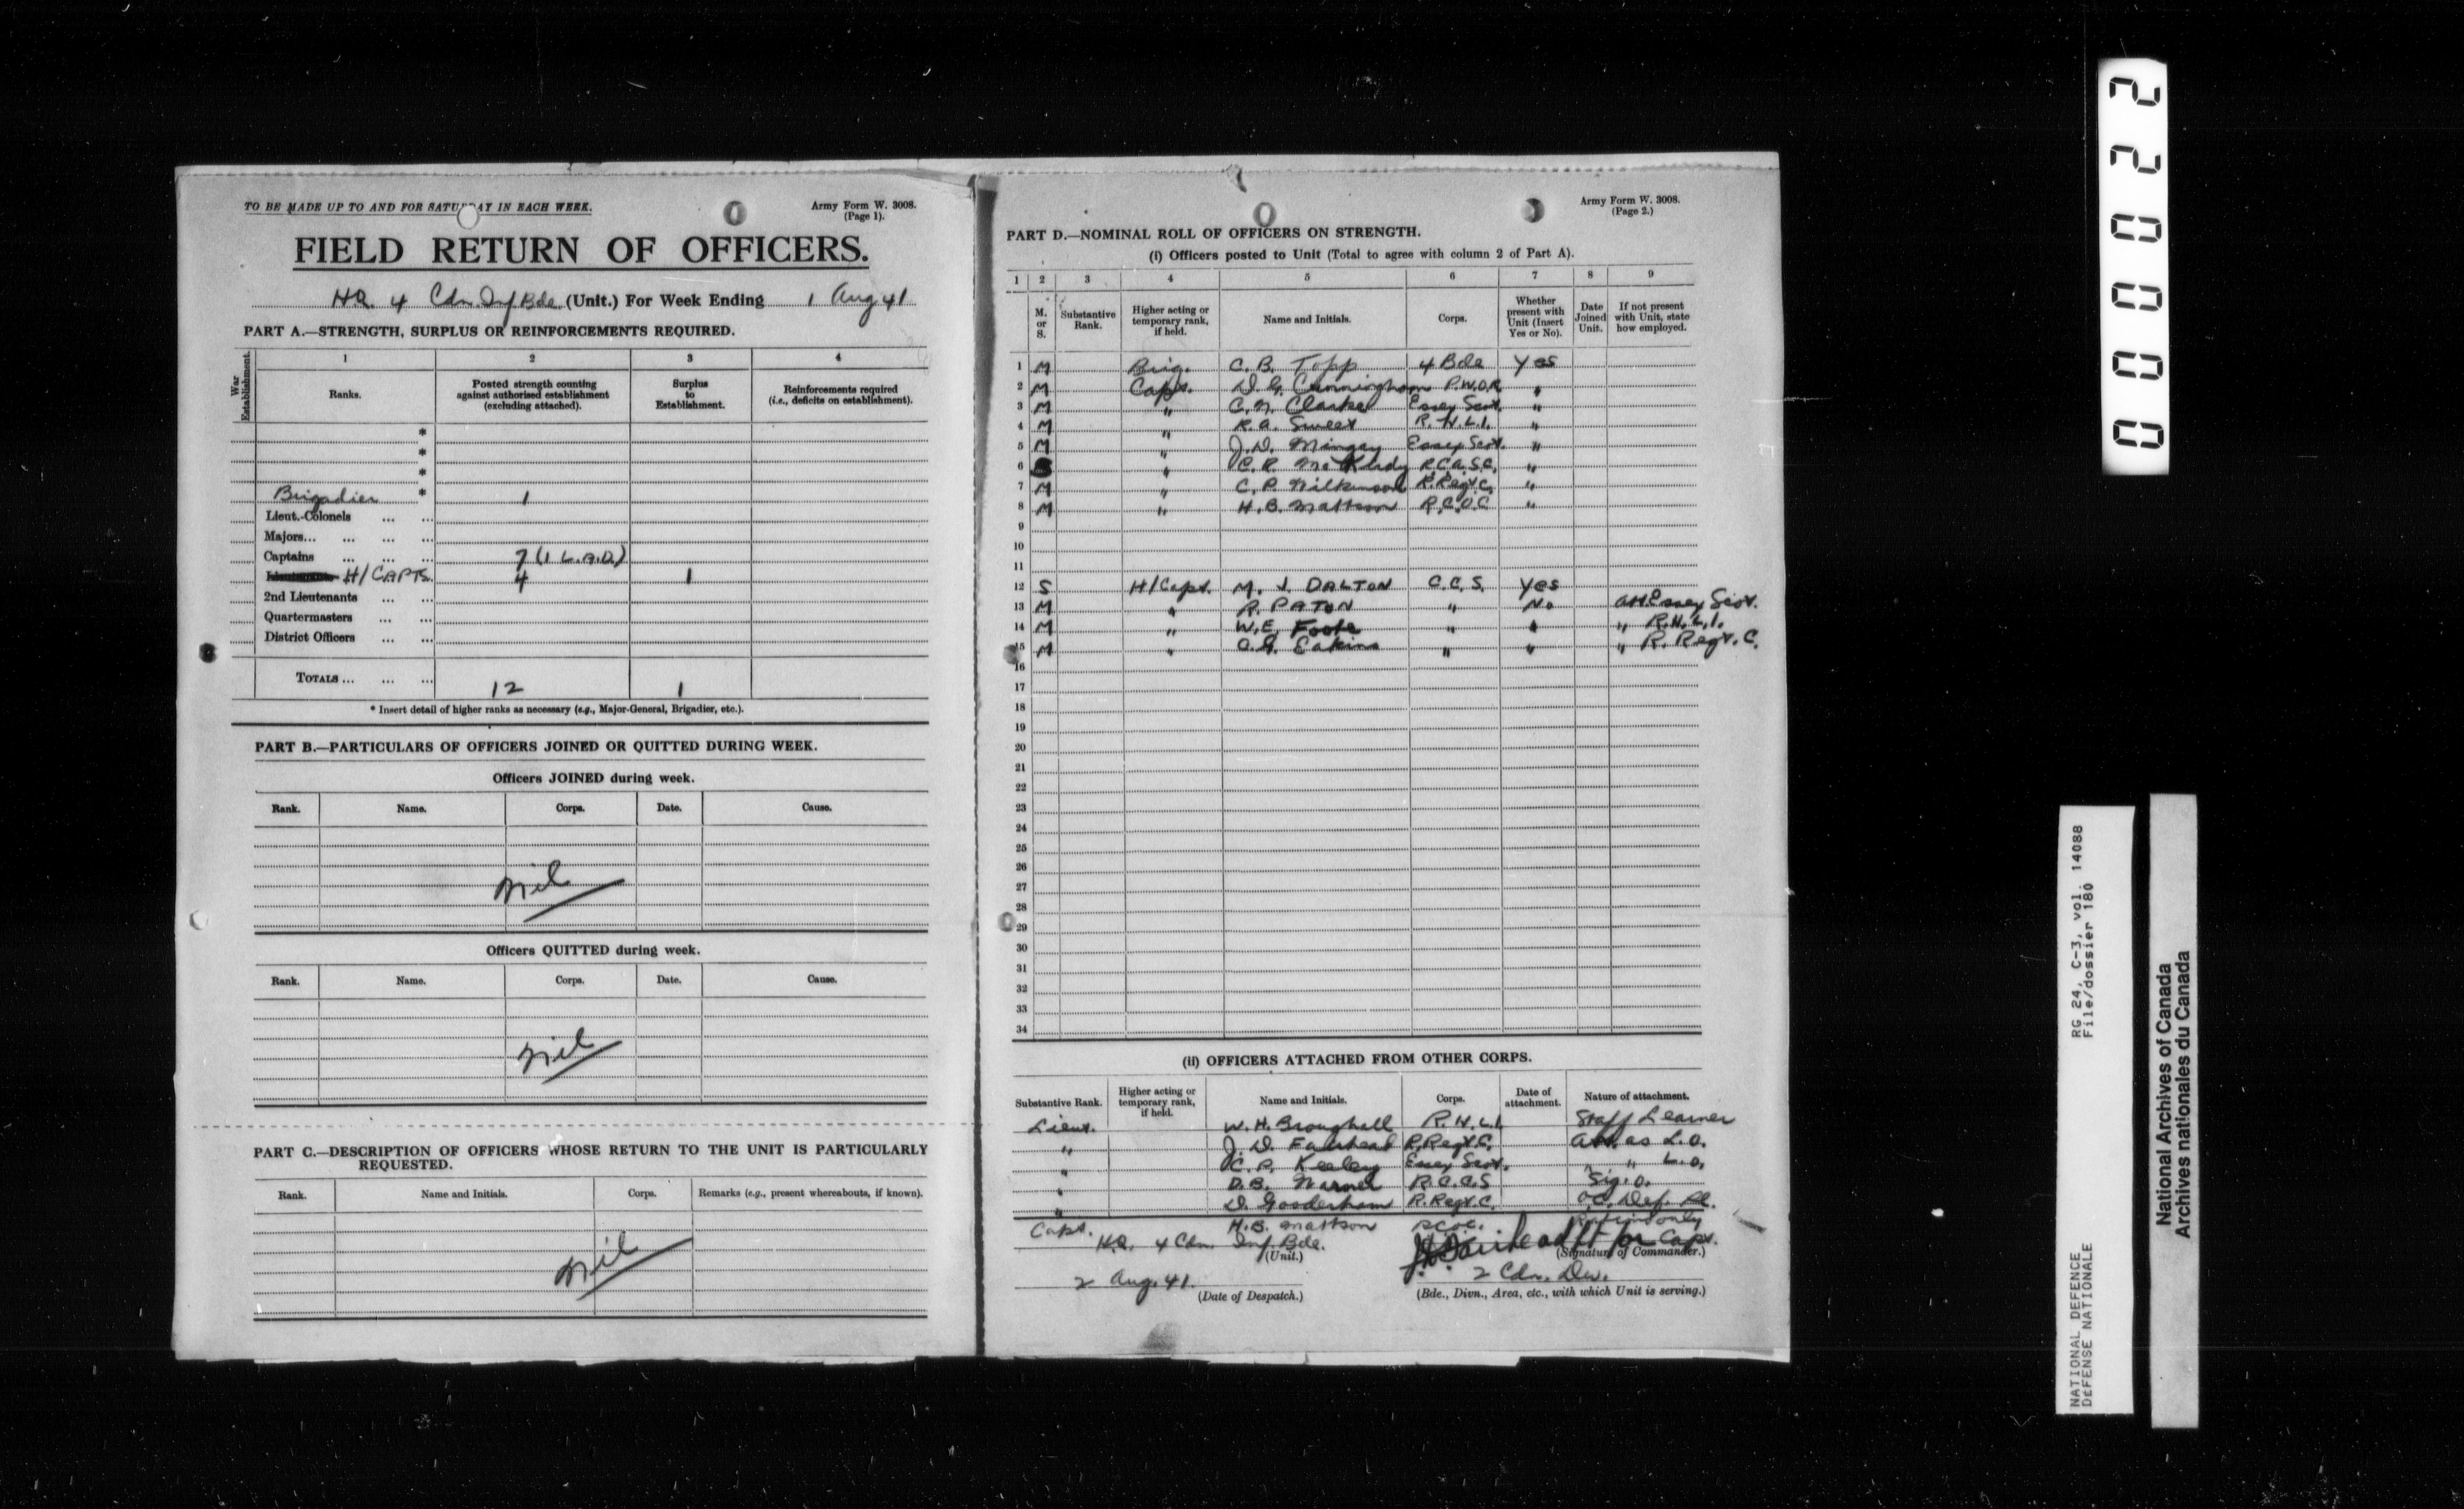 TO BE MADE UP TO AND FOR SATURDAY IN EACH WEEK.
Army Form W. 3008.
(Page 1).
FIELD RETURN OF OFFICERS.
HQ 4 Cdn. Inf Bde (Unit.) For Week Ending 1 Aug 41
PART A.—STRENGTH, SURPLUS OR REINFORCEMENTS REQUIRED.
War Establishment.
1 2 3 4
Ranks.
Posted strength counting against authorised establishment (excluding attached).
Surplus to Establishment.
Reinforcements required (i.e., deficits on establishment).
*
*
*
Brigadier * 1
Lieut.-Colonels ... ...
Majors... ... ... ...
Captains ... ... ... 7 (1 L.A.D.)
H/CAPTS. 4 1
2nd Lieutenants ... ...
Quartermasters ... ...
District Officers ... ...
TOTALS ... ... ... 12 1
* Insert detail of higher ranks as necessary (e.g., Major-General, Brigadier, etc.).
PART B.—PARTICULARS OF OFFICERS JOINED OR QUITTED DURING WEEK.
Officers JOINED during week.
Rank. Name. Corps. Date. Cause.
Nil
Officers QUITTED during week.
Rank. Name. Corps. Date. Cause.
Nil
PART C.—DESCRIPTION OF OFFICERS WHOSE RETURN TO THE UNIT IS PARTICULARLY
REQUESTED.
Rank. Name and Initials. Corps. Remarks (e.g., present whereabouts, if known).
Nil
Army Form W. 3008.
(Page 2.)
PART D.—NOMINAL ROLL OF OFFICERS ON STRENGTH.
(i) Officers posted to Unit (Total to agree with column 2 of Part A).
1 2 3 4 5 6 7 8 9
M. or S.
Substantive Rank.
Higher acting or temporary rank, if held.
Name and Initials.
Corps.
Whether present with Unit (Insert Yes or No).
Date Joined Unit.
If not present with Unit, state how employed.
1 M Brig. C. B. Topp 4 Bde Yes
2 M Capt. D. G. Cunningham P.W.O.R. "
3 M " C. N. Clarke Essex Scot. "
4 M " R. A. Sweet R.H.L.I. "
5 M " J. D. Mingay Essex Scot. "
6 " C. R. McKurdy R.C.A.S.C. "
7 M " C. P. Wilkinson R. Regt. C. "
8 M " H. B. Mattson R.C.O.C "
9
10
11
12 S H/Capt. M. J. DALTON C.C.S. Yes
13 M " R. PATON " No att. Essex Scot.
14 M " W. E. Foote " " " R.H.L.I.
15 M " C. G. Eakins " " " R. Regt. C.
16
17
18
19
20
21
22
23
24
25
26
27
28
29
30
31
32
33
34
(ii) OFFICERS ATTACHED FROM OTHER CORPS.
Substantive Rank.
Higher acting or temporary rank, if held.
Name and Initials.
Corps.
Date of attachment.
Nature of attachment.
Lieut. W. H. Broughall R.H.L.I. Staff Learner
" J. D. Fairhead R. Regt. C. Att. as L.O.
" C. P. Keeley Essex Scot. " " L.O.
" D. B. Warner R.C.C.S Sig. O.
" D. Gooderham R. Regt. C. O.C. Def. Pl.
Capt. H. B. Mattson RCOC. Rations only
H.Q. 4 Cdn. Inf. Bde. J D Fairhead Lt for Capt.
(Unit.) (Signature of Commander.)
2 Aug. 41. 2 Cdn. Div.
(Date of Despatch.) (Bde., Divn., Area, etc., with which Unit is serving.)
000022
NATIONAL DEFENCE RG 24, C-3, vol. 14088
DEFENSE NATIONALE File/dossier 180
National Archives of Canada
Archives nationales du Canada